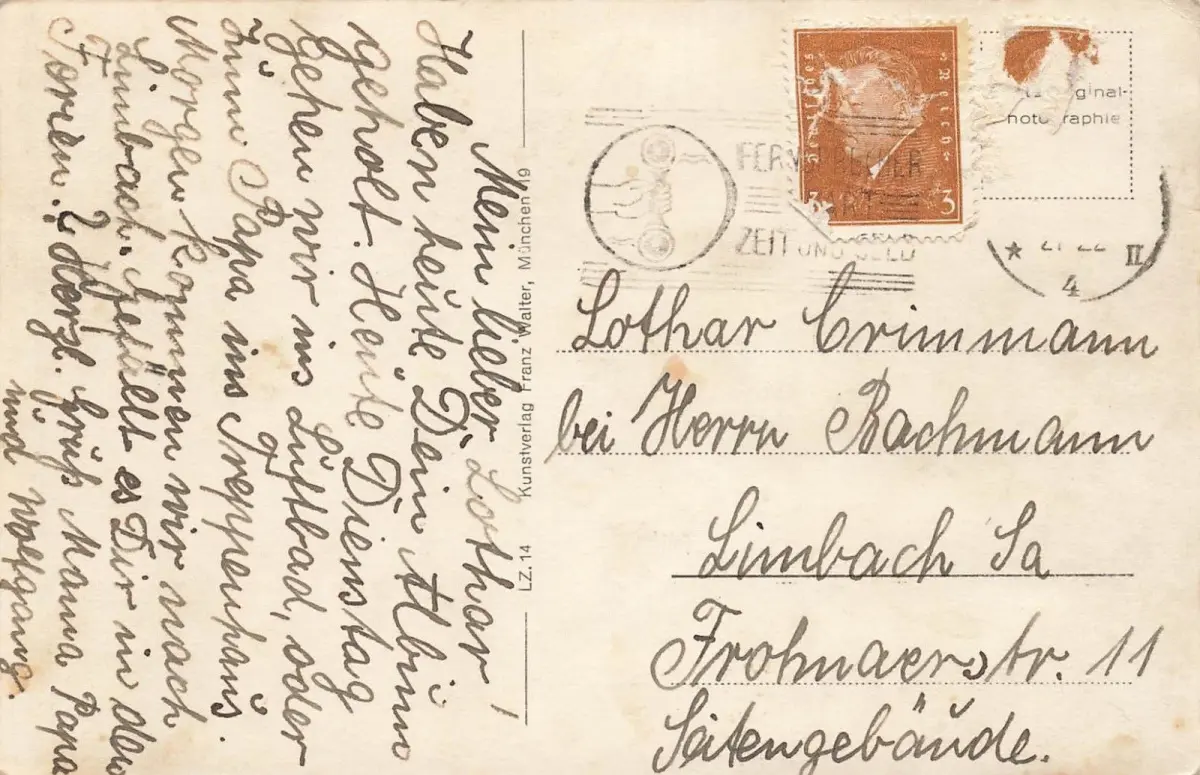 Mein lieber Lothar!
Haben heute Dein Album
geholt. Heute Dienstag
gehen wir ins Luftbad, oder
zum Papa ins Treppenhaus.
Morgen kommen wir nach
Limbach. Gefällt es Dir in den
Ferien? Herzl. Grüß Mama Papa
und Wolfgang.
LZ. 14 Kunstverlag Franz Walter, München 19
Deutsches Reich
3 3
FERNSPRECHER
SPART
ZEIT UND GELD
* 21-22 II
4
Original-
Photographie
Lothar Crimmann
bei Herrn Bachmann
Limbach Sa
Frohnaerstr. 11
Seitengebäude.